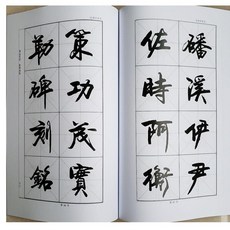 磻溪伊尹
佐時阿衡
策功茂實
勒碑刻銘